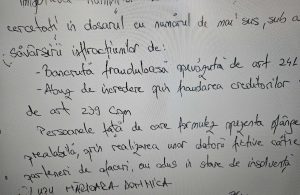 cercetati în dosarul cu numărul de mai sus, sub a
săvârsirii infractiunilor de:
- Bancrută frauduloasă prevăzută de art 241
- Abuz de încredere prin fraudarea creditorilor
de art 239 Cpn
Persoanele fată de care formulez prezenta plânge
prealabilă, prin realizarea unor datorii fictive către
parteneri de afaceri, au adus în stare de insolventă
MARIOARA DOMNICA